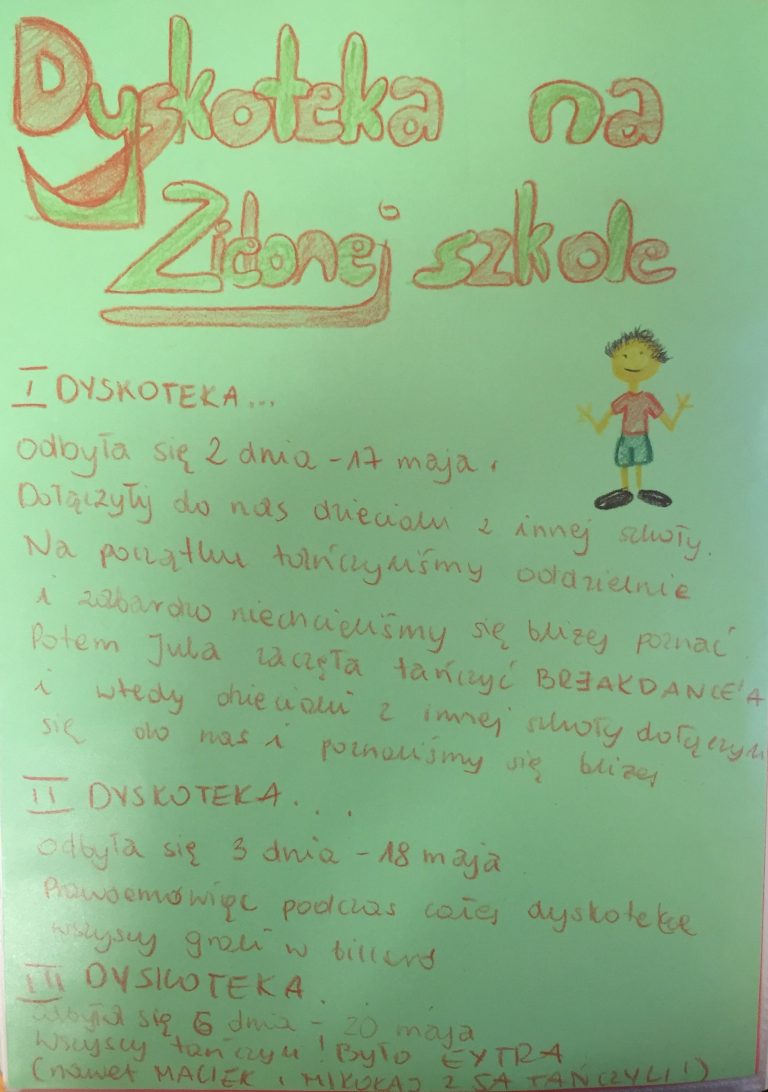 Dyskoteka na
Zielonej szkole
I DYSKOTEKA...
odbyła się 2 dnia - 17 maja.
Dołączyłij do nas dzieciaki z innej szkoły.
Na początku tańczyliśmy oddzielnie
i zabardzo niechcieliśmy się bliżej poznać
Potem Jula zaczęła tańczyć BREAKDANCE'A
i wtedy dzieciaki z innej szkoły dołączyli
się do nas i poznaliśmy się bliżej
II DYSKOTEKA...
odbyła się 3 dnia - 18 maja
Prawdemówięc podczas całej dyskotekce
wszyscy grali w billard
III DYSKOTEKA.
odbyła się 6 dnia - 20 maja
wszyscy tańczyli! Było EXTRA
(nawet MACIEK i MIKOŁAJ Z 5A TAŃCZYLI!)